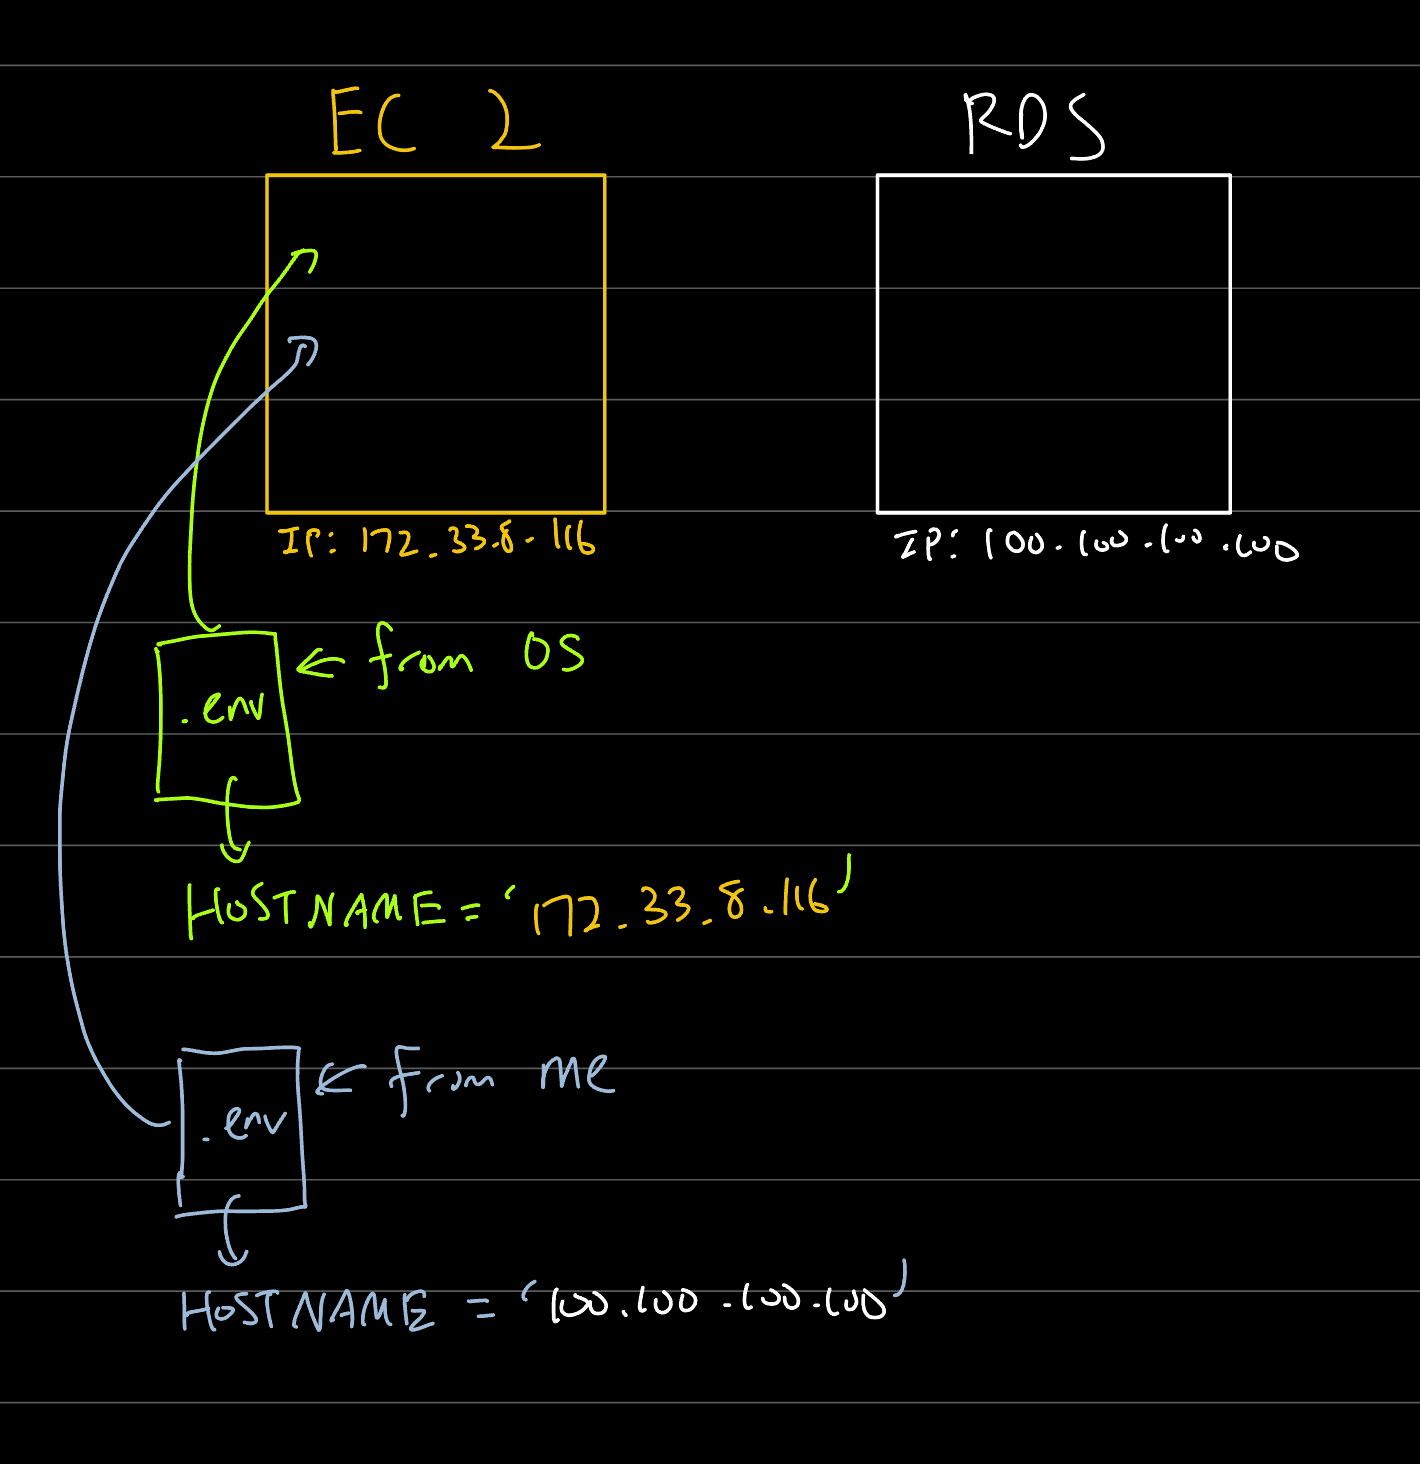 EC 2
RDS
IP: 172.33.8.116
IP: 100.100.100.100
← from OS
.env
HOSTNAME = '172.33.8.116'
← from me
.env
HOSTNAME = '100.100.100.100'